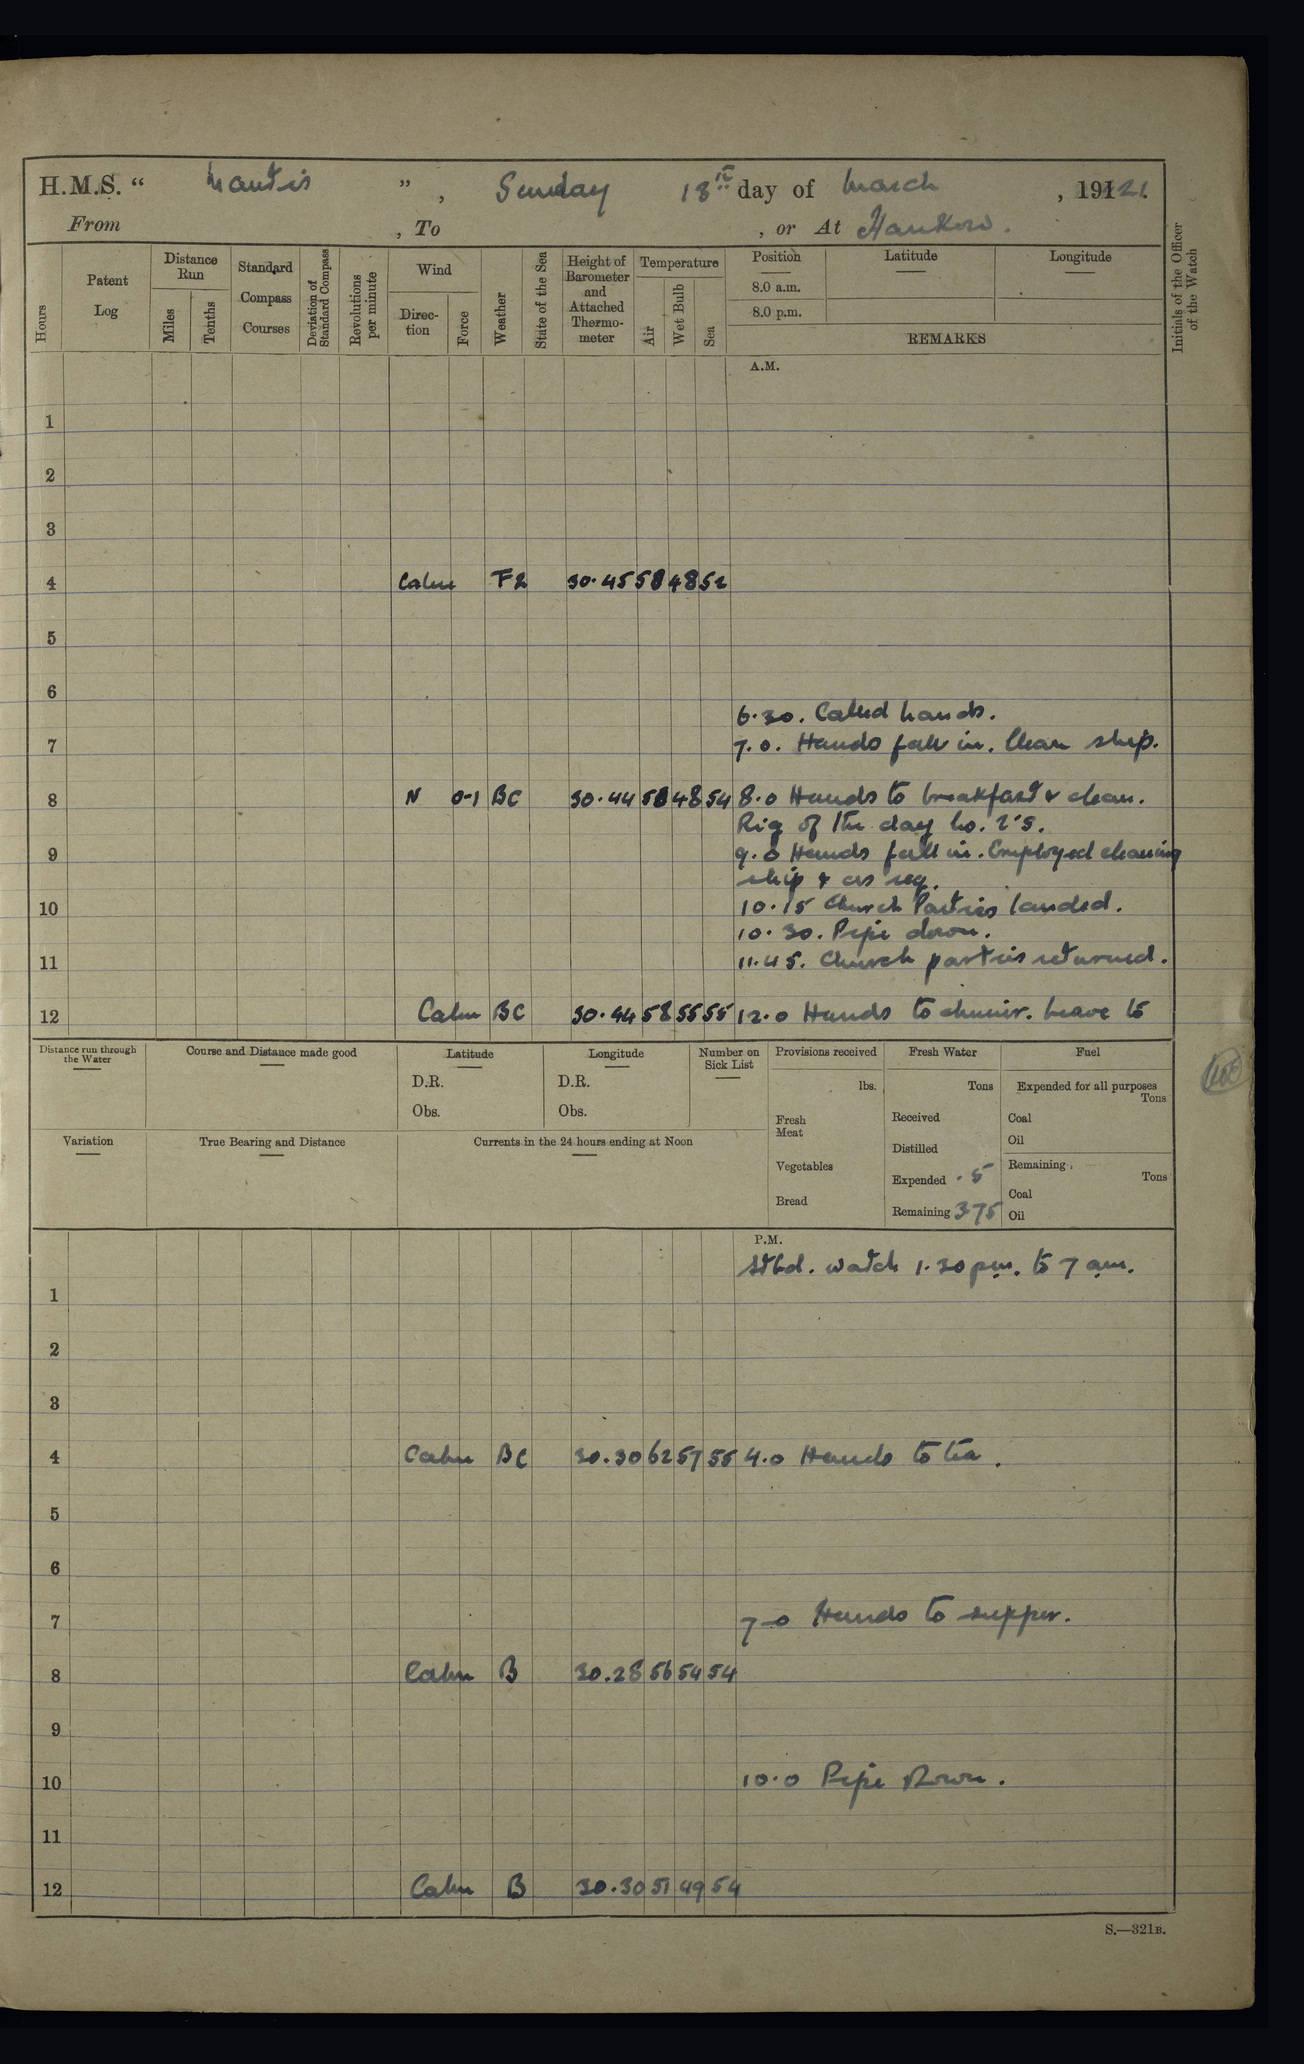 H.M.S. “ Mantis ” , Sunday 13th day of March , 19121.
From , To , or At Hankow.
Hours
Patent Log
Distance Run
Miles
Tenths
Standard Compass Courses
Deviation of Standard Compass
Revolutions per minute
Wind
Direction
Force
Weather
State of the Sea
Height of Barometer and Attached Thermometer
Temperature
Air
Wet Bulb
Sea
Position
8.0 a.m.
8.0 p.m.
Latitude
Longitude
REMARKS
Initials of the Officer of the Watch
A.M.
1
2
3
4 Calm F2 30.45 58 48 52
5
6
6.30. Called hands.
7 7.0. Hands fall in. Clean ship.
8 N 0-1 BC 30.44 58 48 54 8.0 Hands to breakfast & clean.
Rig of the day No. 2's.
9 9.0 Hands fall in. Employed cleaning
ship & as req.
10 10.15 Church Parties landed.
10.30. Pipe down.
11 11.45. Church parties returned.
12 Calm BC 30.44 58 55 55 12.0 Hands to dinner. Leave to
Distance run through the Water
Course and Distance made good
Latitude
D.R.
Obs.
Longitude
D.R.
Obs.
Number on Sick List
Provisions received
lbs.
Fresh Meat
Vegetables
Bread
Fresh Water
Tons
Received
Distilled
Expended .5
Remaining 375
Fuel
Expended for all purposes
Tons
Coal
Oil
Remaining
Tons
Coal
Oil
Variation
True Bearing and Distance
Currents in the 24 hours ending at Noon
P.M.
Stbd. watch 1.30 pm. to 7 am.
1
2
3
4 Calm BC 30.30 62 57 55 4.0 Hands to tea.
5
6
7 7-0 Hands to supper.
8 Calm B 30.28 56 54 54
9
10 10.0 Pipe Down.
11
12 Calm B 30.30 51 49 54
S.—321B.